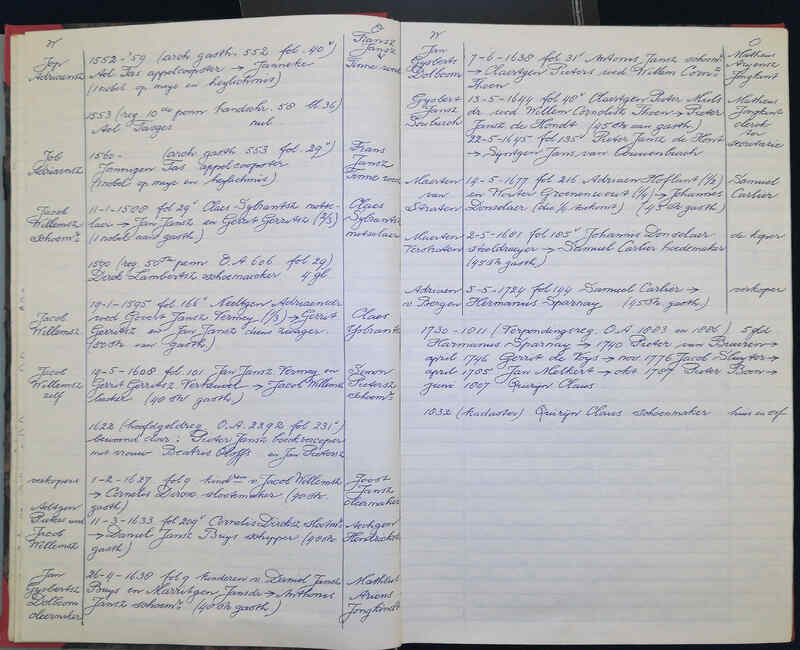 W
O
Jan
Adriaensz
1552-'59 (arch. gasth. 552 fol. 40ᵛ)
Ael Fas appelcoopster → Janneke
(1 nobel op maye en heylichmis)
Fransz
Jansz
Timme
1553 (reg. 10ᵈᵉ penn bandnhr. 58 bl. 36)
Ael Faeges nul
Job
Adriaensz
1560- (arch gasth 553 fol. 29ᵛ)
Jannigen Fas appelcoopster
(1 nobel op maye en heylichmis)
Frans
Jansz
Timme
Jacob
Willemsz
schoemʳ
11-1-1588 fol 29ᵛ Claes Sybrantsz
→ Jan Jansz en Gerrit Gerritsz (2/3)
(1 nobel aan gasth)
Claes
Sybrantsz
metselaer
1590 (reg 50ˢᵗᵉ penn O.A. 606 fol 29)
Dirck Lambertsz schoemaecker 4 gl
Jacob
Willemsz
19-1-1595 fol. 166ᵛ Neeltgen Adriaensdr
wed Govert Jansz Vermey (1/3) → Gerrit
Gerritsz en Jan Jansz diens zwager
(aan gasth)
Claes
IJsbrantsz
Jacob
Willemsz
zelf
14-5-1608 fol. 101 Jan Jansz Vermey en
Gerrit Gerritsz → Jacob Willemsz
backer (40 st gasth)
Symon
Pietersz
schoemʳ
1622 (hoofdgeldreg O.A. 2292 fol 231ᵛ)
bewoond door: Pieter Jansz
met vrouw Beatris Oloffs en Jan Pietersz
verkopers
1-2-1627 fol 9 kindʳᵉⁿ v. Jacob Willemsz
→ Cornelis Dircxz slootemaker (40 st.
gasth)
Joost
Jansz
oliemaker
Aeltgen
Jacob
Willemsz
11-3-1633 fol 209ᵛ Cornelis Dircksz slootmʳ
→ Daniel Jansz Buys schipper (40 st
gasth)
Aechgen
Hendricks
Jan
Gysbertsz
Dolboom
oliemaker
26-4-1638 fol 9 kinderen v. Daniel Jansz
Buys en Marritgen Jansdr → Anthonis
Jansz schoemʳ (40 st gasth)
Matheus
Ariens
Jongkindt
W
O
Jan
Gysbertsz
Dolboom
7-6-1638 fol 31ᵛ Antonis Jansz schoemʳ
→ Claertgen Pieters wed Willem Cornˢ
Thoen
Matheus
Aryensz
Jongkint
Gysbert
Jansz
13-5-1644 fol 48ᵛ Claertgen Pieter
dr wed Willem Cornelisz Thoen → Pieter
Jansz de Hondt (45 st aan gasth)
Matheus
Jongkint
clerck
ter
secretarie
22-5-1645 fol 135ᵛ Pieter Jansz de Hont
→ Dyntgen Jans van Couwenbeach
Maerten
van
Straten
14-5-1677 fol 216 Adriaen Hoflant (1/2)
en Wouter Groenewout (1/4) → Johannes
Donselaer (die 1/4 toekomt) (45 st gasth)
Samuel
Carlier
Maerten
Verstraten
2-5-1681 fol 185ᵛ Johannis Donselaer
stoeldraeyer → Samuel Carlier hoedemaker
(45 st gasth)
de koper
Adriaen
v. Bergen
5-5-1724 fol 144 Samuel Carlier →
Hermanus Sparnay (45 st gasth)
verkoper
1730-1811 (Verpondingsreg. O.A. 1883 en 1886)
Harmanus Sparnay → 1740 Pieter van Bueren →
april 1746 Gerrit de Vrys → nov. 1776 Jacob Sluyter →
april 1785 Jan Melkert → okt 1787 Pieter Boon →
juni 1807 Quirijn Claus
1832 (kadaster) Quirijn Claus schoenmaker huis en erf